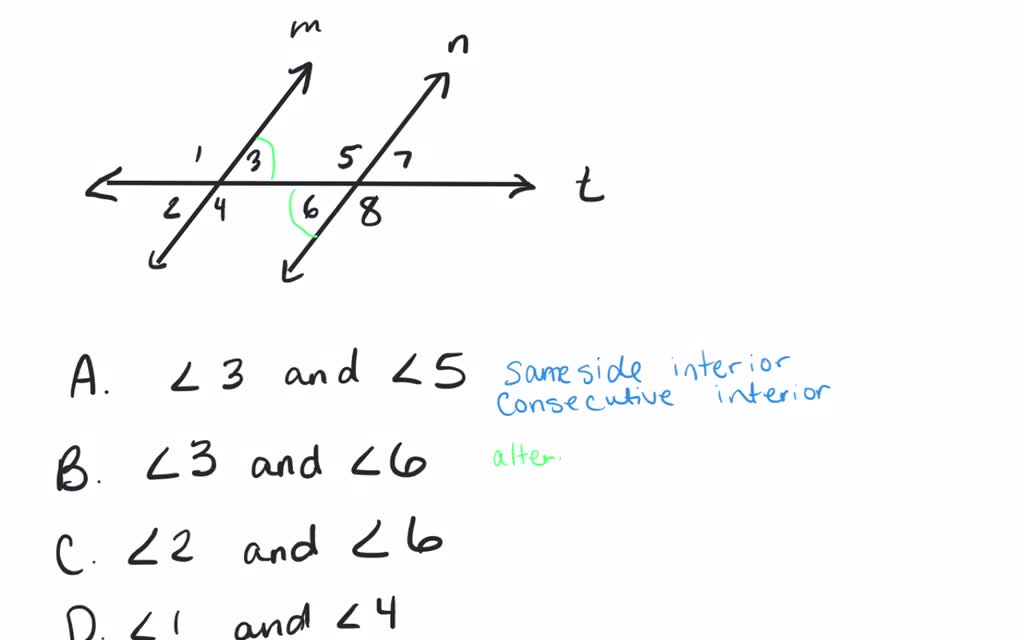 m
n
1 3 5 7
t
2 4 6 8
A. ∠3 and ∠5 Same side interior
Consecutive interior
B. ∠3 and ∠6 alter
C. ∠2 and ∠6
D. ∠1 and ∠4